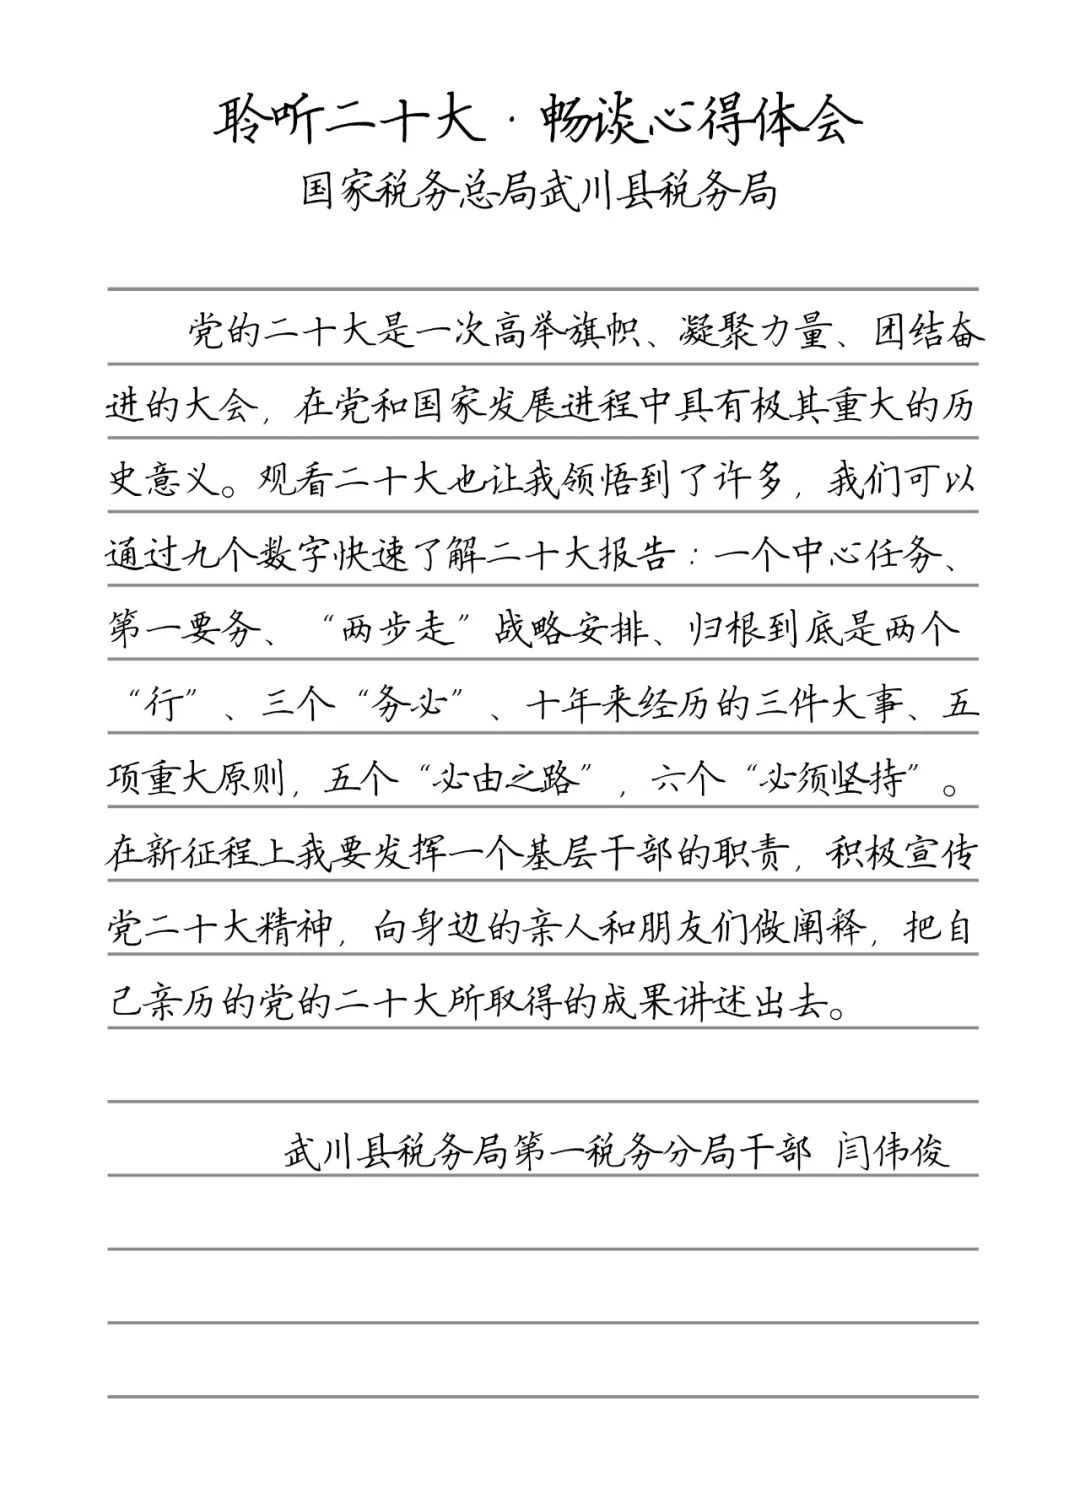 聆听二十大·畅谈心得体会
国家税务总局武川县税务局
党的二十大是一次高举旗帜、凝聚力量、团结奋
进的大会，在党和国家发展进程中具有极其重大的历
史意义。观看二十大也让我领悟到了许多，我们可以
通过九个数字快速了解二十大报告：一个中心任务、
第一要务、“两步走”战略安排、归根到底是两个
“行”、三个“务必”、十年来经历的三件大事、五
项重大原则，五个“必由之路”，六个“必须坚持”。
在新征程上我要发挥一个基层干部的职责，积极宣传
党二十大精神，向身边的亲人和朋友们做阐释，把自
己亲历的党的二十大所取得的成果讲述出去。
武川县税务局第一税务分局干部 闫伟俊